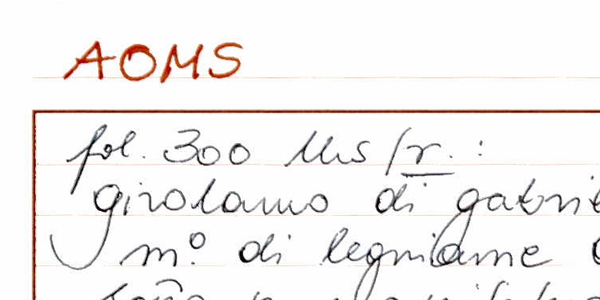 AOMS
fol. 300 bis/r. :
girolamo di gabri
mº di legniame